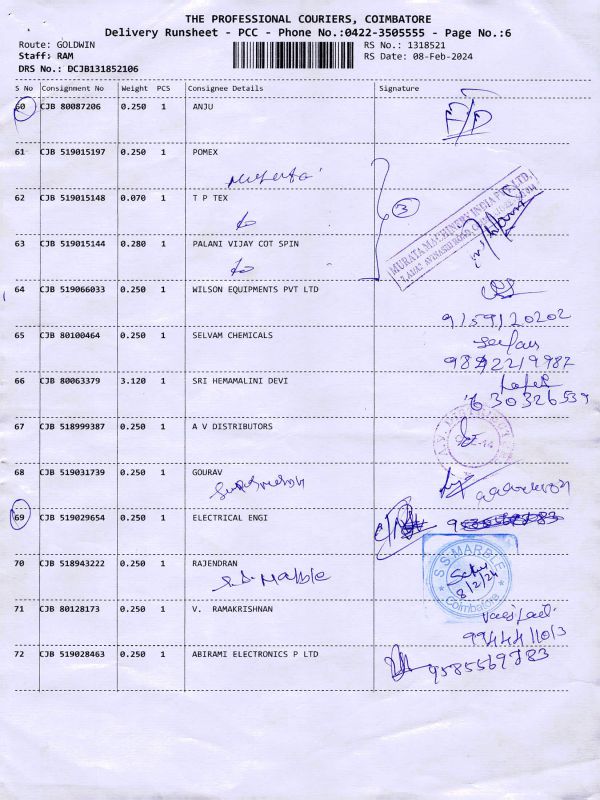 THE PROFESSIONAL COURIERS, COIMBATORE
Delivery Runsheet - PCC - Phone No.:0422-3505555 - Page No.:6
Route: GOLDWIN RS No.: 1318521
Staff: RAM RS Date: 08-Feb-2024
DRS No.: DCJB131852106
S No Consignment No Weight PCS Consignee Details Signature
60 CJB 80087206 0.250 1 ANJU
61 CJB 519015197 0.250 1 POMEX
62 CJB 519015148 0.070 1 T P TEX
3
MURATA MACHINERY INDIA PVT. LTD.
63 CJB 519015144 0.280 1 PALANI VIJAY COT SPIN
64 CJB 519066033 0.250 1 WILSON EQUIPMENTS PVT LTD
9159120202
65 CJB 80100464 0.250 1 SELVAM CHEMICALS
66 CJB 80063379 3.120 1 SRI HEMAMALINI DEVI
67 CJB 518999387 0.250 1 A V DISTRIBUTORS
68 CJB 519031739 0.250 1 GOURAV
69 CJB 519029654 0.250 1 ELECTRICAL ENGI
70 CJB 518943222 0.250 1 RAJENDRAN
S.S. Marble
S.S. MARBLE
8/2/24
Coimbatore
71 CJB 80128173 0.250 1 V. RAMAKRISHNAN
72 CJB 519028463 0.250 1 ABIRAMI ELECTRONICS P LTD
9585569783